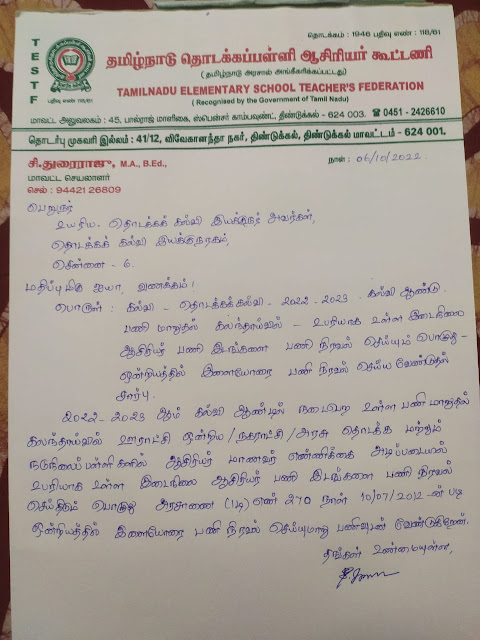 தொடக்கம் : 1946 பதிவு எண் : 118/61
TESTF
தமிழ்நாடு தொடக்கப்பள்ளி ஆசிரியர் கூட்டணி
( தமிழ்நாடு அரசால் அங்கீகரிக்கப்பட்டது )
TAMILNADU ELEMENTARY SCHOOL TEACHER'S FEDERATION
( Recognised by the Government of Tamil Nadu )
பதிவு எண் 118/61
மாவட்ட அலுவலகம் : 45, பால்ராஜ் மாளிகை, ஸ்பென்சர் காம்பவுண்ட், திண்டுக்கல் - 624 003. ☎ 0451 - 2426610
தொடர்பு முகவரி இல்லம் : 41/12, விவேகானந்தா நகர், திண்டுக்கல், திண்டுக்கல் மாவட்டம் - 624 001.
சி.துரைராஜு, M.A., B.Ed.,
மாவட்ட செயலாளர்
செல் : 94421 26809
நாள் : 06/10/2022.
பெறுநர்
உயரிய - தொடக்கக் கல்வி இயக்குநர் அவர்கள்,
தொடக்கக் கல்வி இயக்குநரகம்,
சென்னை - 6.
மதிப்புமிகு ஐயா, வணக்கம்!
பொருள் : கல்வி - தொடக்கக்கல்வி - 2022 - 2023 . கல்வி ஆண்டு
பணி மாறுதல் கலந்தாய்வில் - உபரியாக உள்ள இடைநிலை
ஆசிரியர் பணி இடங்களை பணி நிரவல் செய்யும் பொழுது -
ஒன்றியத்தில் இளையோரை பணி நிரவல் செய்ய வேண்டுதல்
சார்பு.
2022 - 2023 ஆம் கல்வி ஆண்டில் நடைபெற உள்ள பணி மாறுதல்
கலந்தாய்வில் ஊராட்சி ஒன்றிய / நகராட்சி / அரசு தொடக்க மற்றும்
நடுநிலைப்பள்ளிகளில் ஆசிரியர் மாணவர் எண்ணிக்கை அடிப்படையில்
உபரியாக உள்ள இடைநிலை ஆசிரியர் பணி இடங்களை பணி நிரவல்
செய்திடும் பொழுது அரசாணை (1டி) எண் 270 நாள் 10/07/2012 -ன் படி
ஒன்றியத்தில் இளையோரை பணி நிரவல் செய்யுமாறு பணிவுடன் வேண்டுகிறேன்.
தங்கள் உண்மையுள்ள,